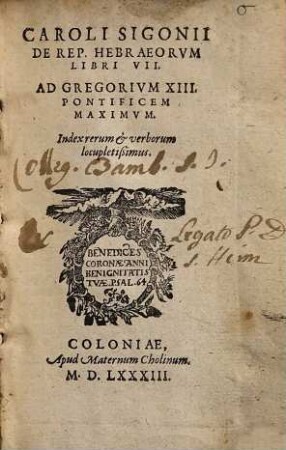 CAROLI SIGONII
DE REP. HEBRAEORVM
LIBRI VII.
AD GREGORIVM XIII.
PONTIFICEM
MAXIMVM.
Index rerum & verborum
locupletißimus.
Colleg. Bamb. S. J.
Ex Legato P. D
s. Heim
BENEDICES
CORONÆ ANNI
BENIGNITATIS
TVÆ. PSAL. 64.
COLONIAE,
Apud Maternum Cholinum.
M. D. LXXXIII.